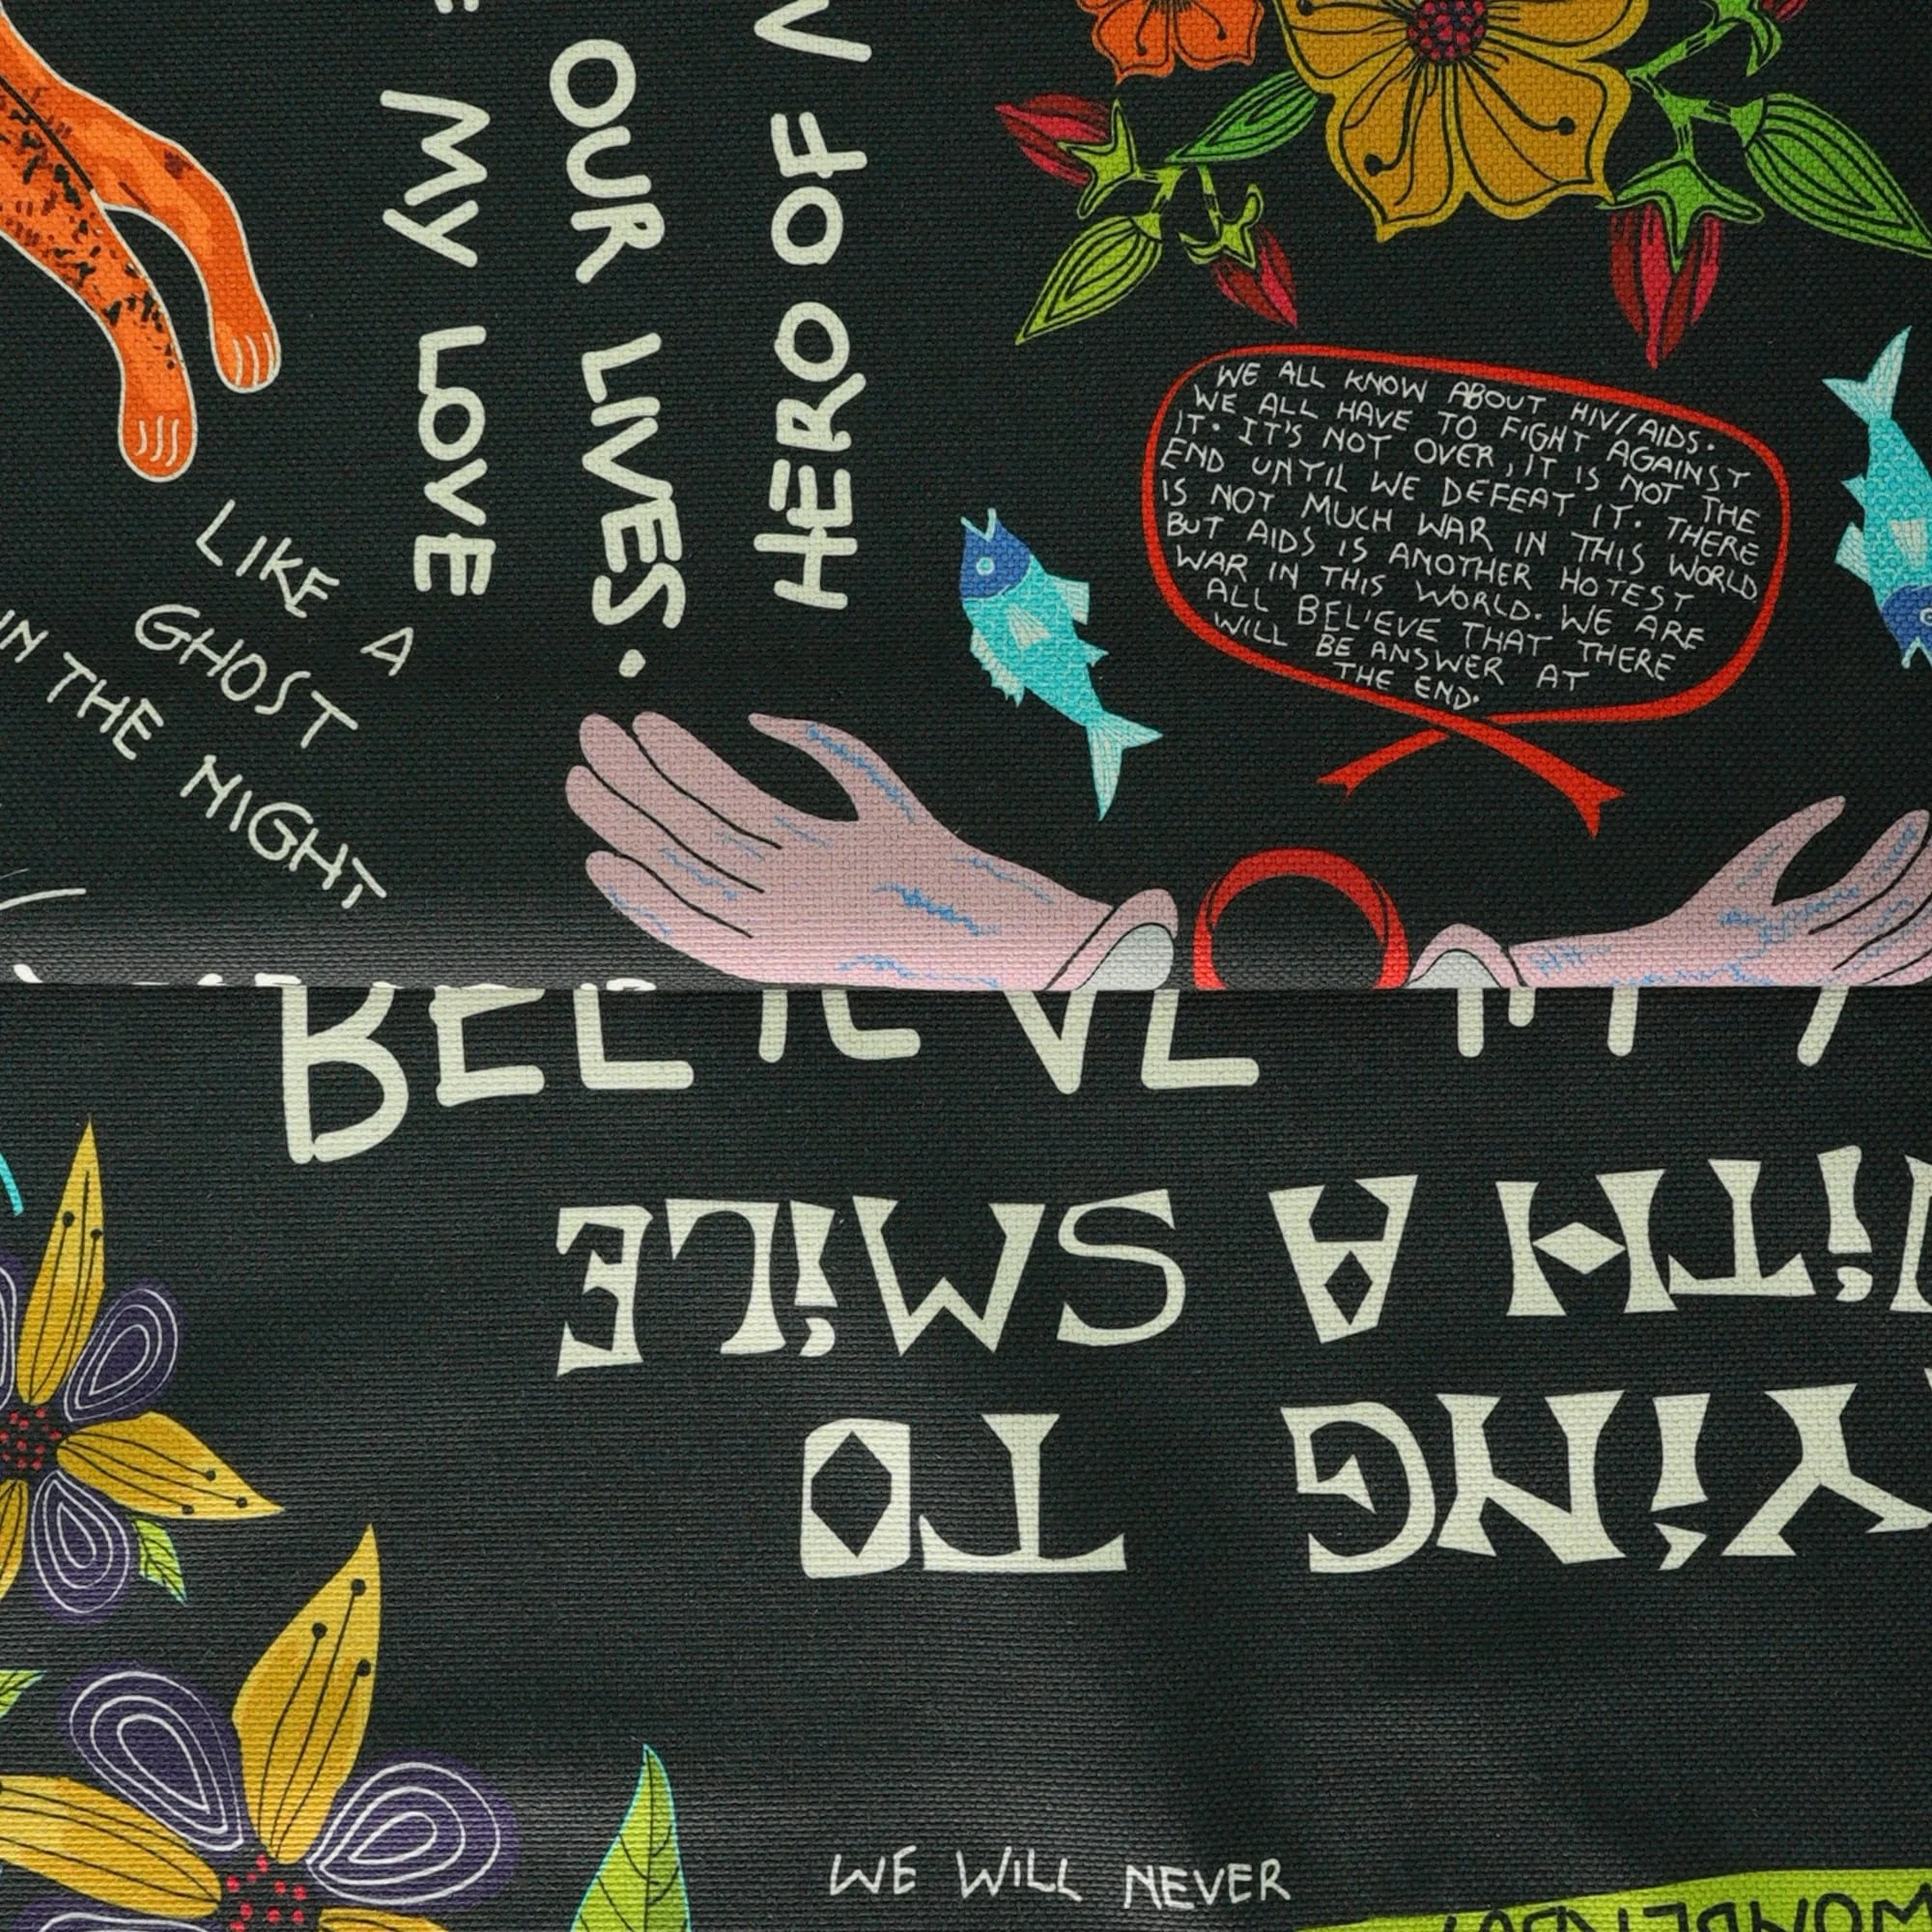 MY LOVE
OUR LIVES.
HERO OF
LIKE
A
GHOST
IN THE NIGHT
WE ALL KNOW ABOUT HIV/AIDS.
WE ALL HAVE TO FIGHT AGAINST
IT. IT'S NOT OVER, IT IS NOT THE
END UNTIL WE DEFEAT IT. THERE
IS NOT MUCH WAR IN THIS WORLD
BUT AIDS IS ANOTHER HOTEST
WAR IN THIS WORLD. WE ARE
ALL BELIEVE THAT THERE
WILL BE ANSWER AT
THE END.
BELIEVE
YING TO
WITH A SMILE
WE WILL NEVER